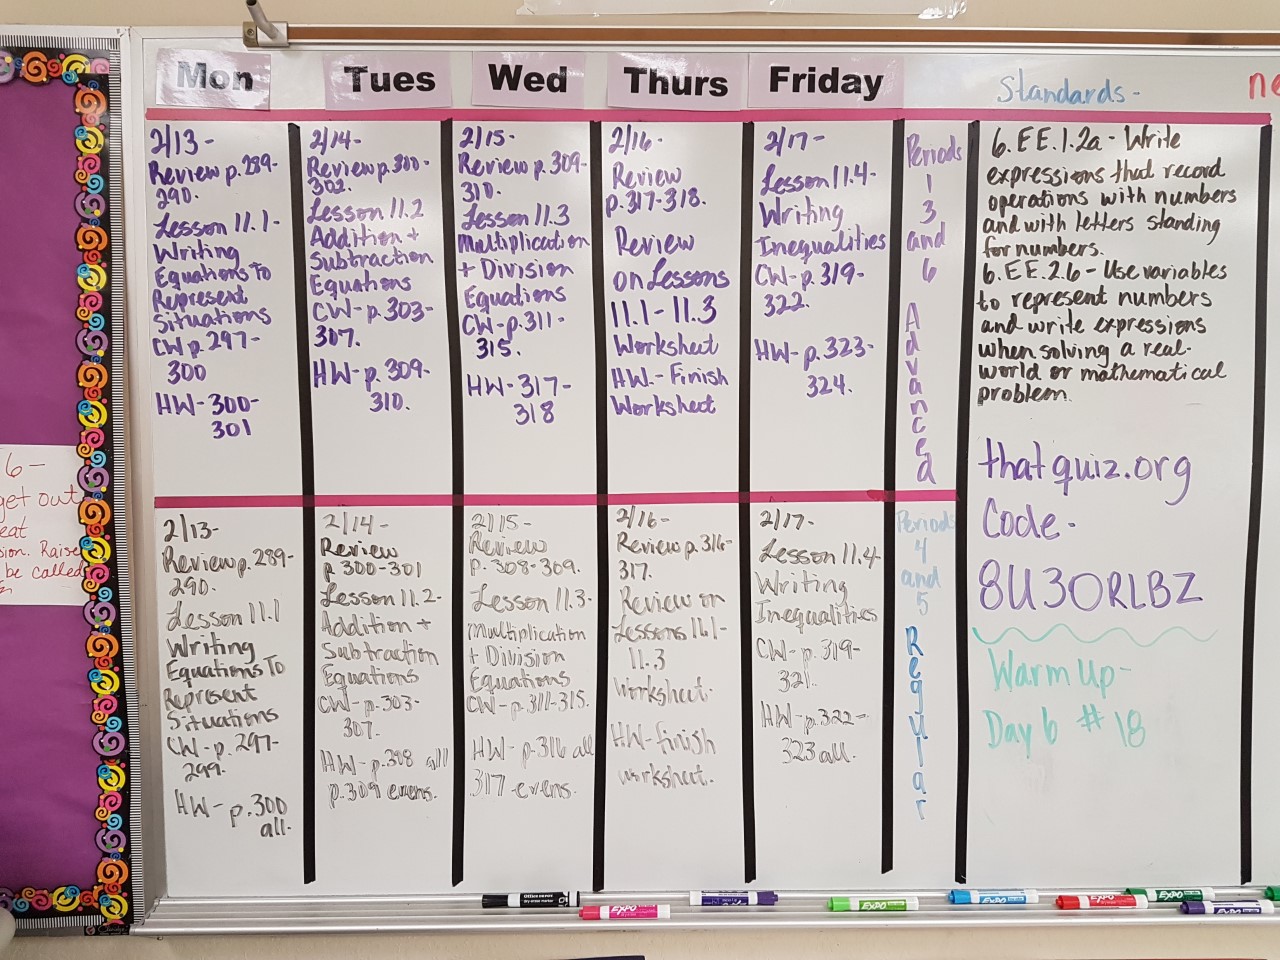 Mon
Tues
Wed
Thurs
Friday
Standards-
ne
2/13-
Review p.289-
290.
Lesson 11.1-
Writing
Equations To
Represent
Situations
CW p.297-
300
HW-300-
301
2/14-
Review p.300-
302.
Lesson 11.2
Addition +
Subtraction
Equations
CW-p.303-
307.
HW-p.309-
310.
2/15-
Review p.309-
310.
Lesson 11.3
Multiplication
+ Division
Equations
CW-p.311-
315.
HW-317-
318
2/16-
Review
p.317-318.
Review
on Lessons
11.1-11.3
Worksheet
HW.-Finish
Worksheet
2/17-
Lesson 11.4-
Writing
Inequalities
CW-p.319-
322.
HW-p.323-
324.
Periods
1
3
and
6
Advanced
6.EE.1.2a-Write
expressions that record
operations with numbers
and with letters standing
for numbers.
6.EE.2.6-Use variables
to represent numbers
and write expressions
when solving a real-
world or mathematical
problem.
thatquiz.org
Code-
8U3ORLBZ
Warm Up-
Day 6 #18
2/13-
Review p.289-
290.
Lesson 11.1
Writing
Equations To
Represent
Situations
CW-p.297-
299.
HW-p.300
all.
2/14-
Review
p.300-301
Lesson 11.2-
Addition +
Subtraction
Equations
CW-p.303-
307.
HW-p.308 all
p.309 evens.
2/15-
Review
p.308-309.
Lesson 11.3-
Multiplication
+ Division
Equations
CW-p.311-315.
HW-p.316 all
317 evens.
2/16-
Review p.316-
317.
Review on
Lessons 11.1-
11.3
Worksheet.
HW-finish
worksheet.
2/17-
Lesson 11.4-
Writing
Inequalities
CW-p.319-
321.
HW-p.322-
323 all.
Periods
4
and
5
Regular
6-
get out
eat
sion. Raise
be called
EXPO
EXPO
EXPO
EXPO